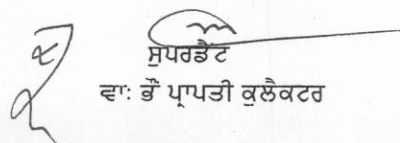 ਸੁਪਰਡੈਂਟ
ਵਾ: ਭੌਂ ਪ੍ਰਾਪਤੀ ਕੁਲੈਕਟਰ